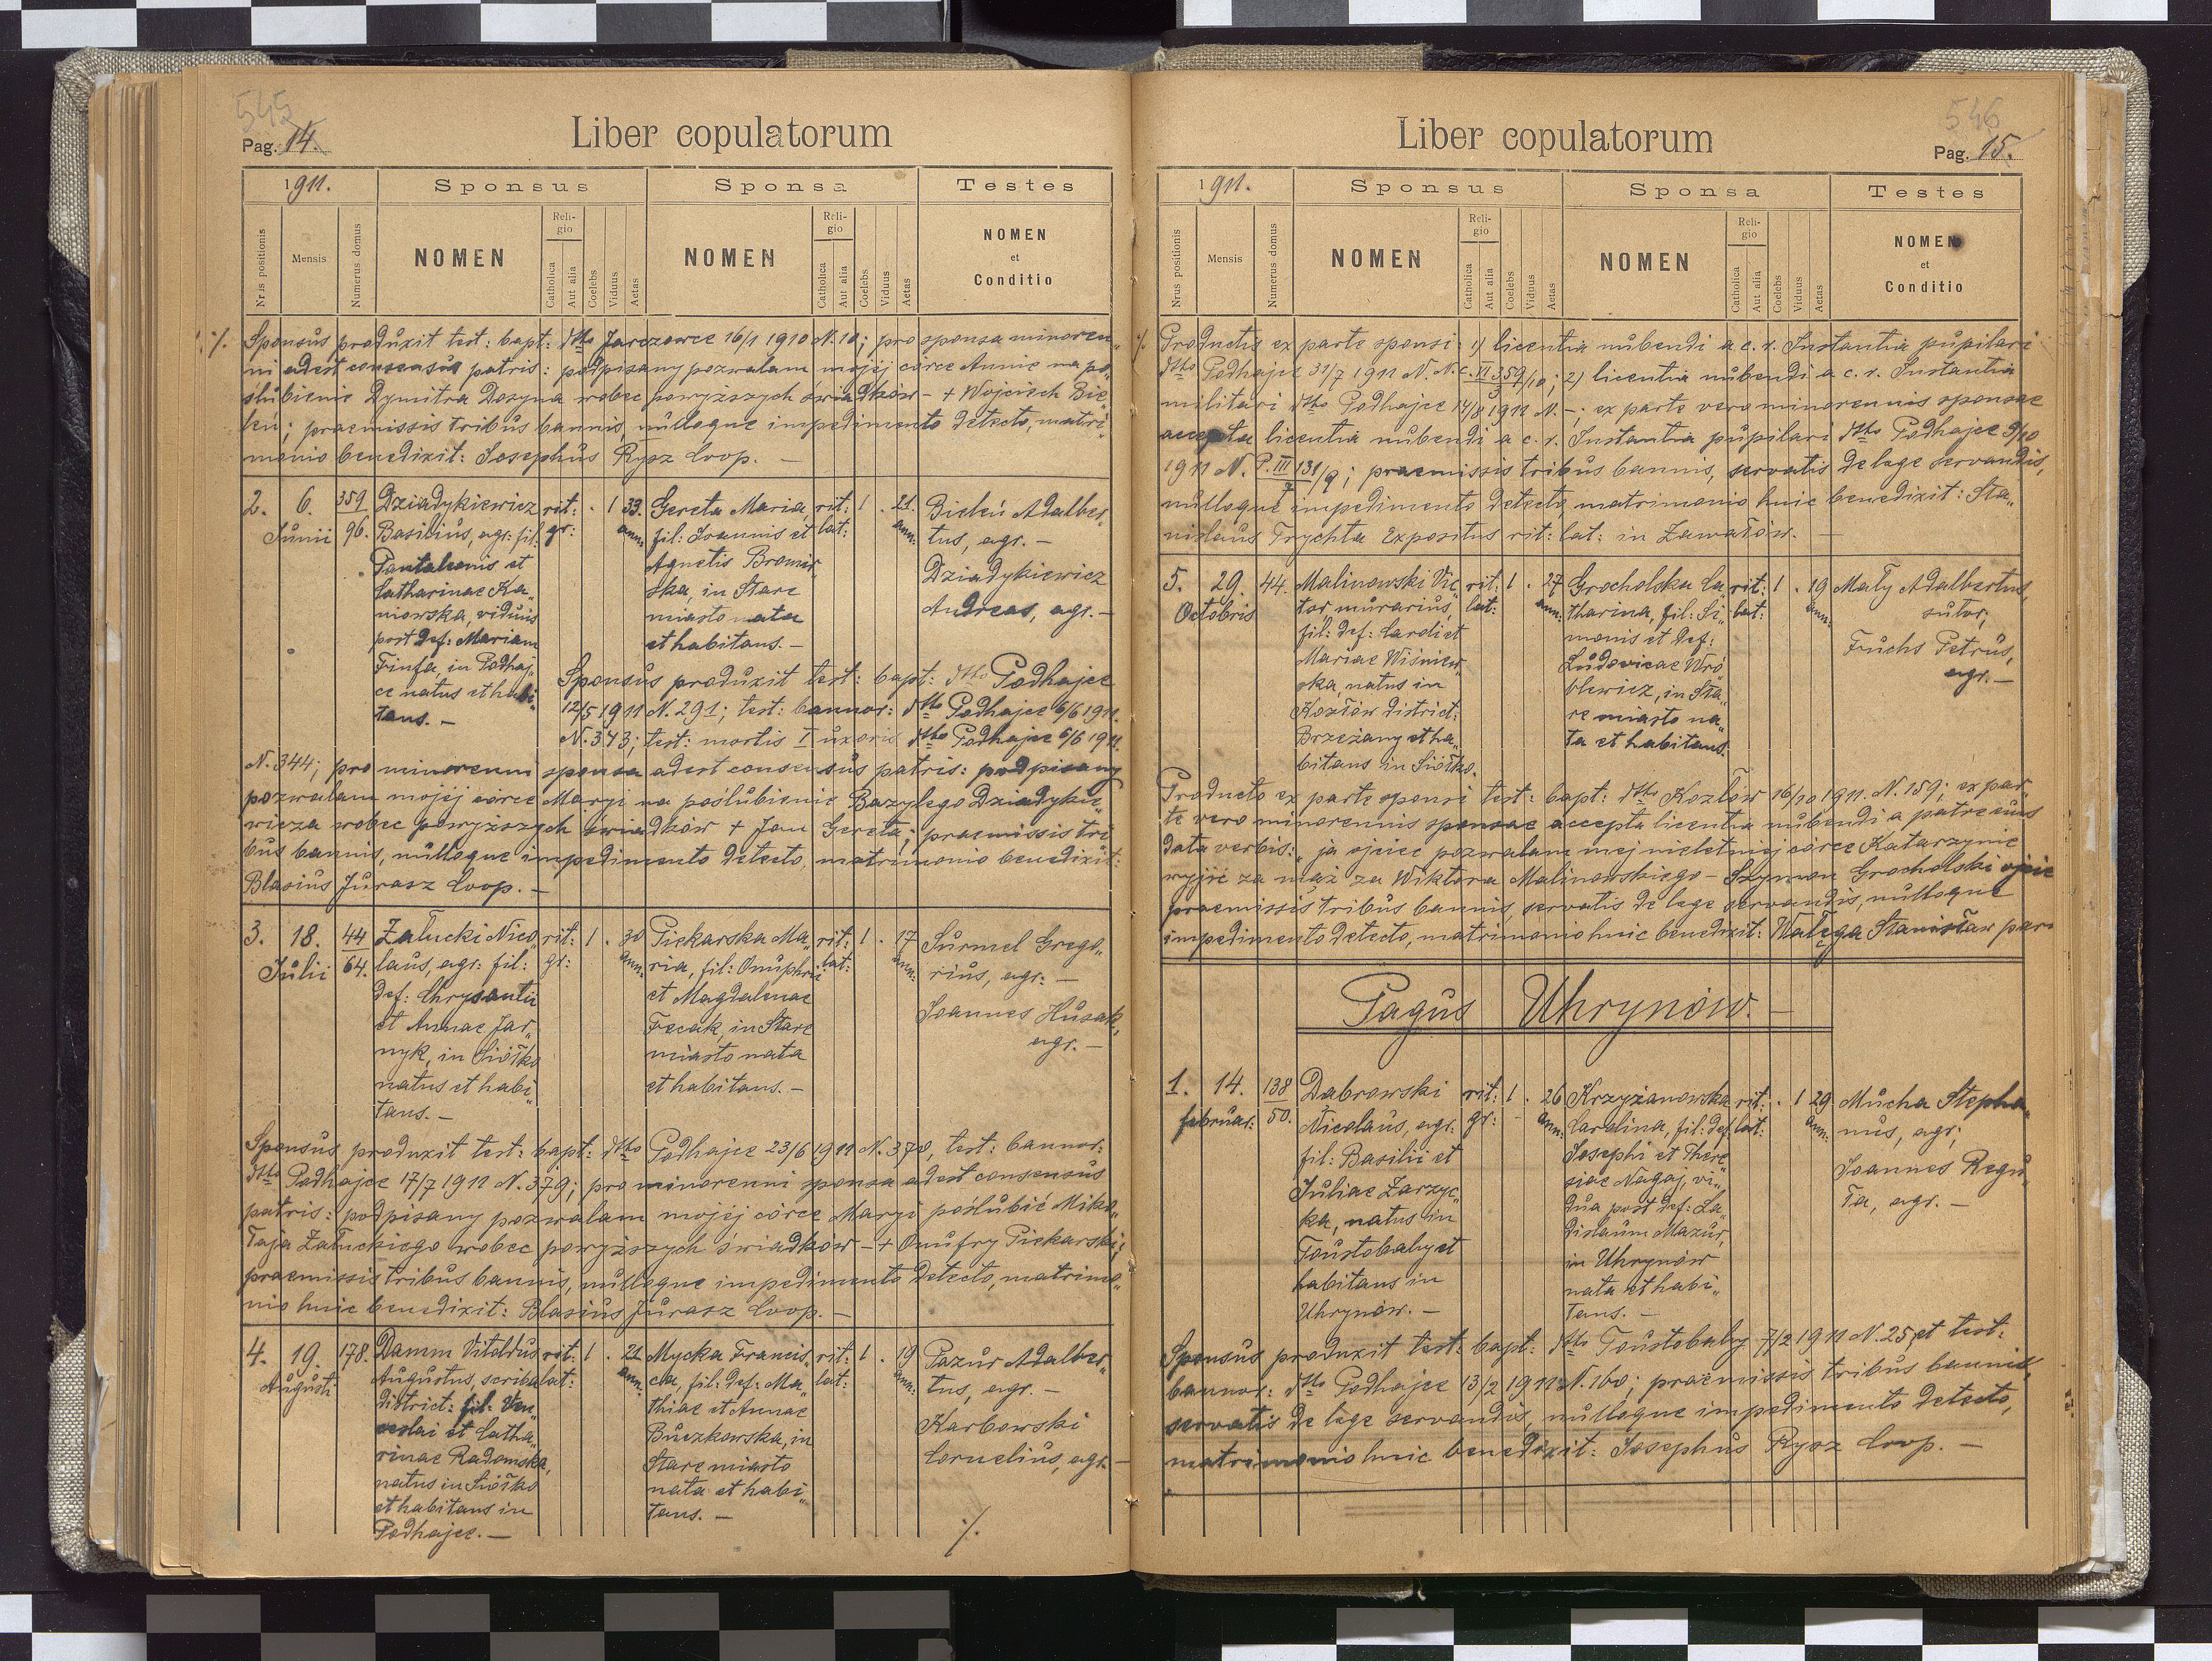 545
Pag. 14.
Liber copulatorum
1911.
Sponsus
Sponsa
Testes
Nrus positionis
Mensis
Numerus domus
NOMEN
Religio
Catholica
Aut alia
Coelebs
Viduus
Aetas
NOMEN
Religio
Catholica
Aut alia
Coelebs
Viduus
Aetas
NOMEN
et
Conditio
·/. Sponsus produxit test: bapt: dtto Jarczowce 16/1 1910 N. 10; pro sponsa minoren„
ni adest consensus patris: podpisany pozwalam mojej córce Annie na po„
ślubienie Dymitra Dozyna wobec powyższych świadków - + Wojciech Bie„
leń; praemissis tribus bannis, nulloque impedimento detecto, matri„
monio benedixit: Josephus Rysz Coop. -
2. 6. Junii
359
96.
Dziadykiewicz
Basilius, agr: fil:
Pantaleonis et
Catharinae Ka„
niowska, viduus
post def: Mariam
Finfa, in Podhaj„
ce natus et habi„
tans. -
rit: gr:
. 1 33. ann:
Gereta Maria,
fil: Joannis et
Agnetis Bromir„
ska, in Stare
miasto nata
et habitans. -
rit: lat:
1 . 21. ann:
Bieleń Adalber„
tus, agr. -
Dziadykiewicz
Andreas, agr. -
Sponsus produxit test: bapt: dtto Podhajce
12/5 1911 N. 291; test: bannor: dtto Podhajce 6/6 1911.
N. 343; test: mortis I uxoris dtto Podhajce 6/6 1911.
N. 344; pro minorenni sponsa adest consensus patris: podpisany
pozwalam mojéj córce Maryi na poślubienie Bazylego Dziadykie„
wicza wobec powyższych świadków + Jan Gereta; praemissis tri
bus bannis, nulloque impedimento detecto, matrimonio benedixit:
Blasius Jurasz Coop. -
3. 18. Julii
44
64.
Załucki Nico„
laus, agr: fil:
def: Chrysantii
et Annae Jar„
nyk, in Siółko
natus et habi„
tans. -
rit: gr:
1 . 30 ann:
Piekarska Ma„
ria, fil: Onuphrii
et Magdalenae
Fecak, in Stare
miasto nata
et habitans. -
rit: lat:
1 . 17 ann:
Surmel Grego„
rius, agr: -
Joannes Husak,
agr. -
Sponsus produxit test: bapt: dtto Podhajce 23/6 1911 N. 370, test: bannor:
dtto Podhajce 17/7 1911 N. 379; pro minorenni sponsa adest consensus
patris: podpisany pozwalam mojéj córce Maryi poślubić Miko„
łaja Załuckiego wobec powyższych świadków - + Onufry Piekarski;
praemissis tribus bannis, nulloque impedimento detecto, matrimo„
nio huic benedixit: Blasius Jurasz Coop. -
4. 19. Augusti
178.
Damm Vitoldus
Augustus, scriba
district: fil: Ven„
ceslai et Catha„
rinae Radomska,
natus in Siółko
et habitans in
Podhajce. -
rit: lat:
1 . 21 ann:
Mycka Francis„
ca, fil: def: Ma„
thiae et Annae
Buczkowska, in
Stare miasto
nata et habi„
tans. -
rit: lat:
1 . 19 ann:
Pazur Adalber„
tus, agr. -
Karbowski
Cornelius, agr. -
·/.
546
Pag. 15.
Liber copulatorum
1911.
Sponsus
Sponsa
Testes
Nrus positionis
Mensis
Numerus domus
NOMEN
Religio
Catholica
Aut alia
Coelebs
Viduus
Aetas
NOMEN
Religio
Catholica
Aut alia
Coelebs
Viduus
Aetas
NOMEN
et
Conditio
·/. Productis ex parte sponsi: 1) licentia nubendi a c. r. Instantia pupilari
dtto Podhajce 31/7 1911 N. N. C. VI 359/10; 2) licentia nubendi a c. r. Instantia
militari dtto Podhajce 14/8 1911 N. -; ex parte vero minorennis sponsae
accepta licentia nubendi a c. r. Instantia pupilari dtto Podhajce 9/10
1911 N. P. III 131/9; praemissis tribus bannis, servatis de lege servandis,
nulloque impedimento detecto, matrimonio huic benedixit: Sta„
nislaus Trychta Expositus rit: lat: in Zawałów. -
5. 29. Octobris
44.
Malinowski Vic„
tor murarius,
fil: def: Caroli et
Mariae Wiśniew„
ska, natus in
Kozłów district:
Brzeżany et ha„
bitans in Siółko.
rit: lat:
1 . 27 ann:
Grocholska Ca„
tharina, fil: Si„
monis et def:
Ludovicae Wró„
blewicz, in Sta„
re miasto na„
ta et habitans.
rit: lat:
1 . 19 ann:
Mały Adalbertus,
sutor;
Fuchs Petrus,
agr. -
Producto ex parte sponsi test: bapt: dtto Kozłów 16/10 1911. N. 159; ex par„
te vero minorennis sponsae accepta licentia nubendi a patre eius
data verbis: „ja ojciec pozwalam mej nieletniej córce Katarzynie
wyjść za mąż za Wiktora Malinowskiego - Szymon Grocholski ojciec
praemissis tribus bannis, servatis de lege servandis, nulloque
impedimento detecto, matrimonio huic benedixit: Wałęga Stanisław par.
Pagus Uhrynów. -
1. 14. februar:
138
50.
Dabrowski
Nicolaus, agr.
fil: Basilii et
Juliae Zarzyc„
ka, natus in
Toustobaby et
habitans in
Uhrynów. -
rit: gr:
1 . 26 ann:
Krzyżanowska
Carolina, fil: def:
Josephi et There
siae Nagaj, vi„
dua post def: La„
dislaum Mazur,
in Uhrynów
nata et habi„
tans. -
rit: lat:
. 1 29 ann:
Mucha Stepha„
nus, agr;
Joannes Regu„
ła, agr. -
Sponsus produxit test: bapt: dtto Toustobaby 7/2 1911 N. 25, et test:
bannor: dtto Podhajce 13/2 1911 N. 160; praemissis tribus bannis,
servatis de lege servandis, nulloque impedimento detecto,
matrimonio huic benedixit: Josephus Rysz Coop. -